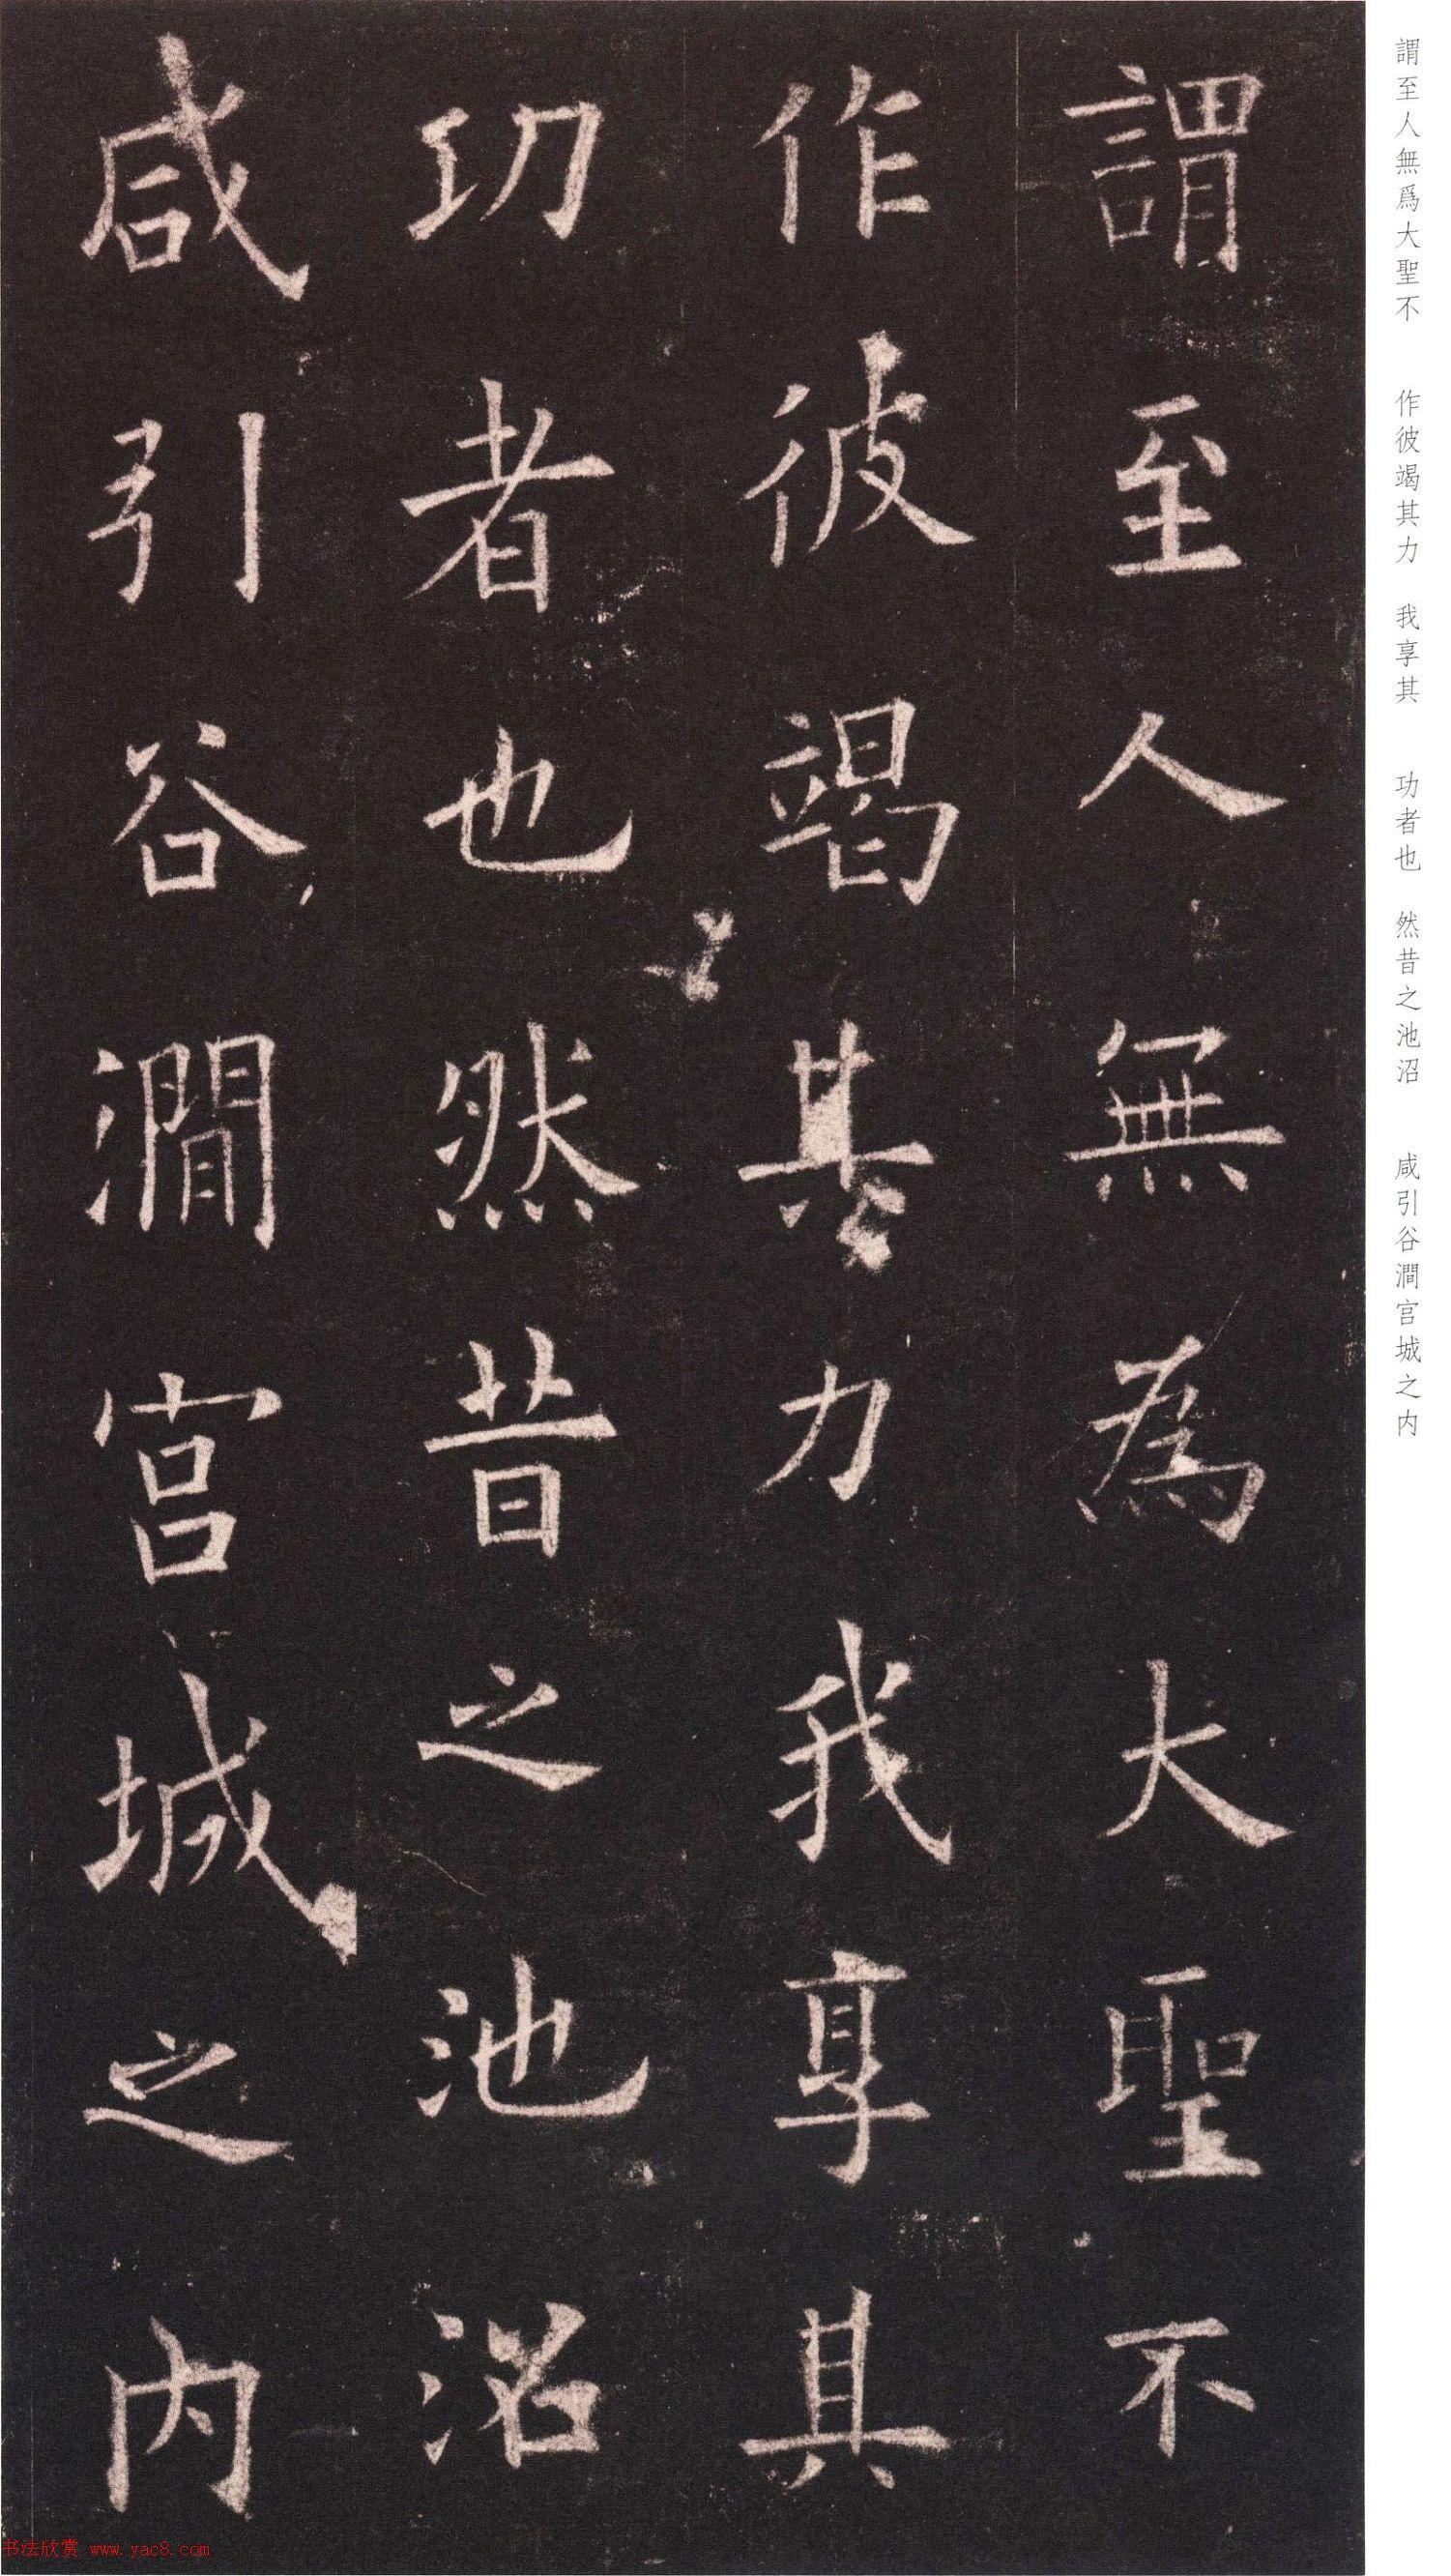 謂至人無為大聖不
作彼竭其力我享其
功者也然昔之池沼
咸引谷澗宮城之内
謂至人無爲大聖不 作彼竭其力 我享其 功者也 然昔之池沼 咸引谷澗宫城之内
书法欣赏 www.yac8.com